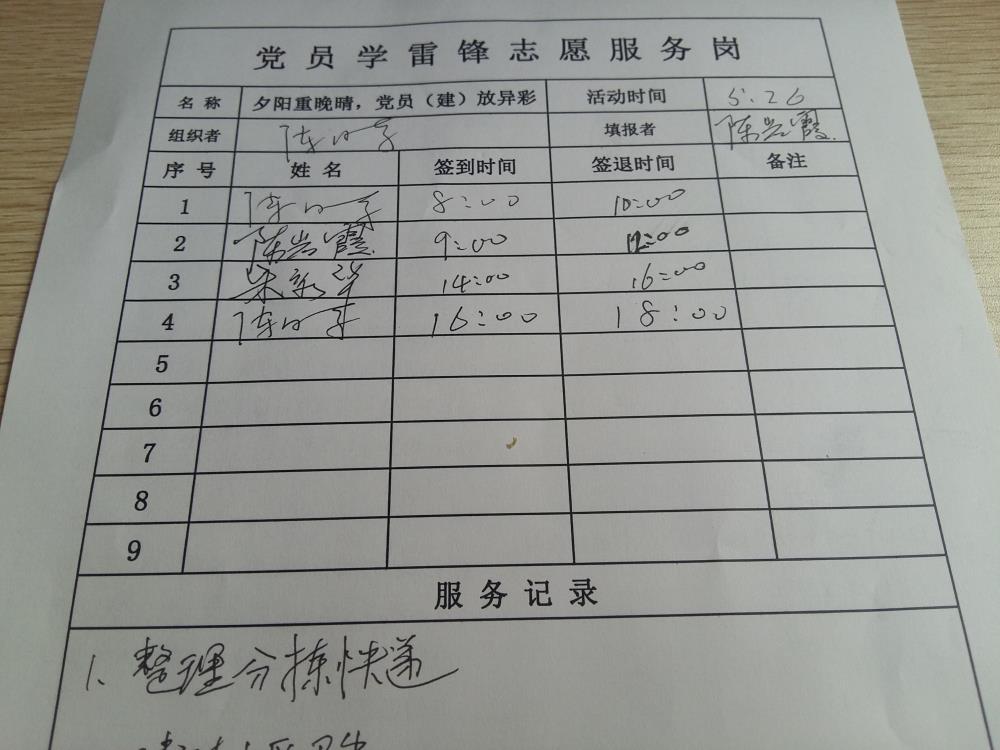 党员学雷锋志愿服务岗
名称 夕阳重晚晴，党员（建）放异彩 活动时间 5.26
组织者 填报者 陈岩霞
序号 姓名 签到时间 签退时间 备注
1 8:00 10:00
2 陈岩霞 9:00 12:00
3 朱新华 14:00 16:00
4 16:00 18:00
5
6
7
8
9
服务记录
1、整理分拣快递